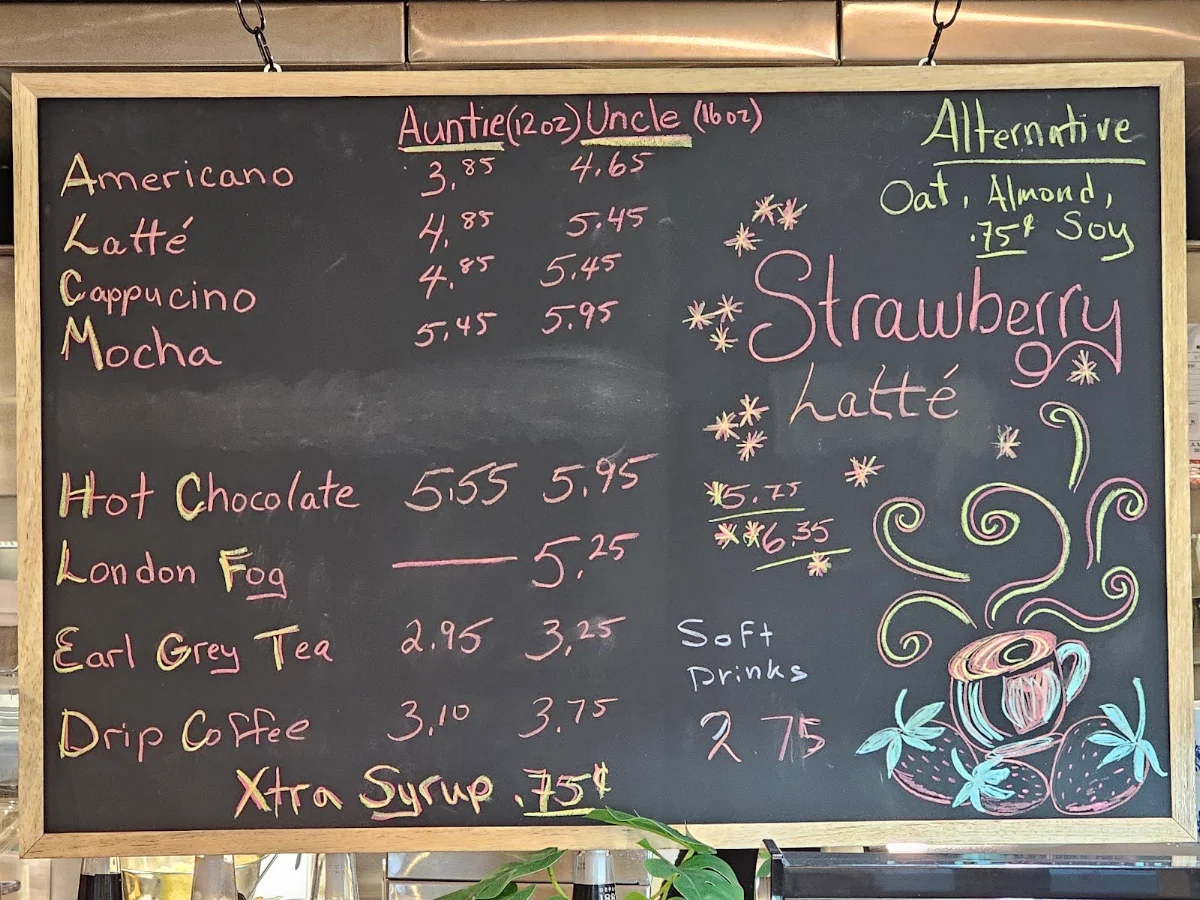 Auntie (12oz) Uncle (16oz)
Americano 3.85 4.65
Latté 4.85 5.45
Cappucino 4.85 5.45
Mocha 5.45 5.95
Hot Chocolate 5.55 5.95
London Fog — 5.25
Earl Grey Tea 2.95 3.25
Drip Coffee 3.10 3.75
Xtra Syrup .75¢
Alternative
Oat, Almond,
.75¢ Soy
Strawberry
Latté
*5.75
**6.35
Soft
Drinks
2.75